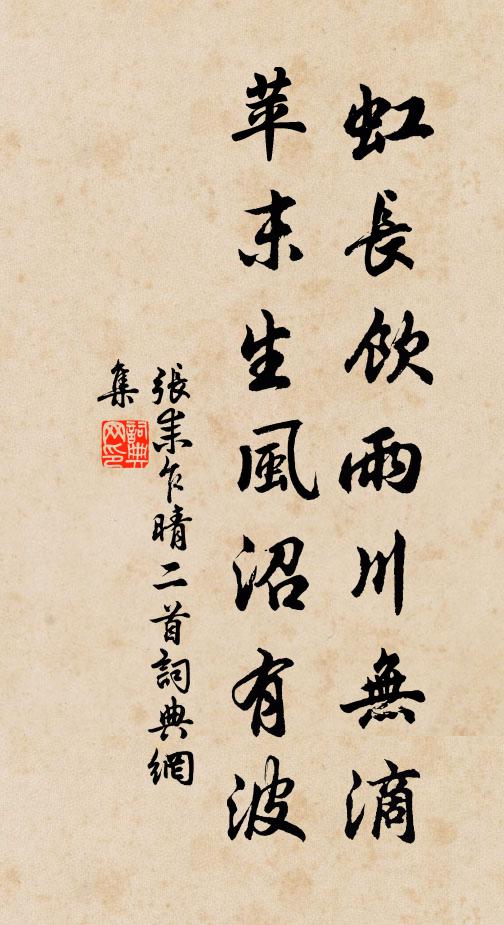 虹長飲雨川無滴
苹末生風沼有波
張耒乍晴二首詞典網
集
詞典
网印